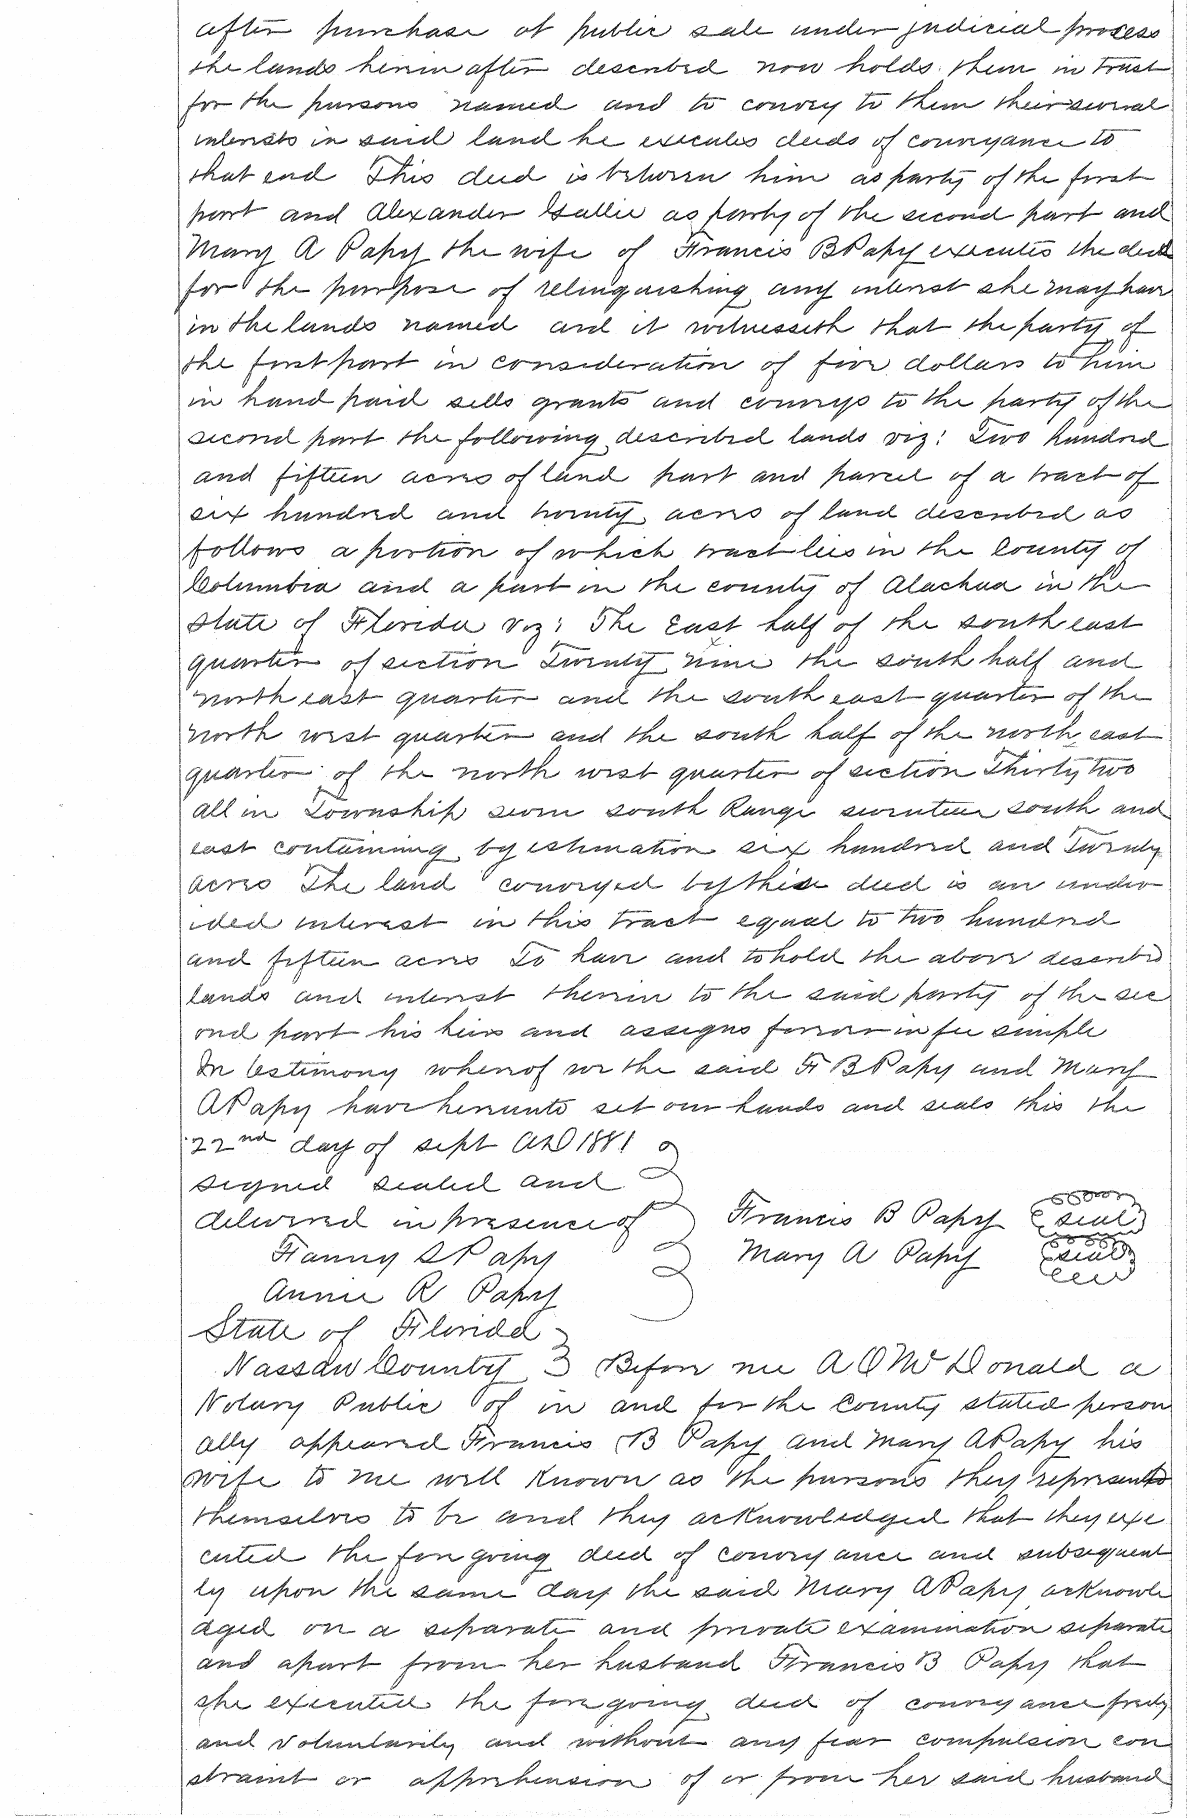 after purchase at public sale under judicial process
the lands herein after described now holds them in trust
for the persons named and to convey to them their several
interests in said land he executes deeds of conveyance to
that end This deed is between him as party of the first
part and Alexander Gallie as party of the second part and
Mary A Papy the wife of Francis B Papy executes the deed
for the purpose of relinquishing any interest she may have
in the lands named and it witnesseth that the party of
the first part in consideration of five dollars to him
in hand paid sells grants and conveys to the party of the
second part the following described lands viz: Two hundred
and fifteen acres of land part and parcel of a tract of
six hundred and twenty acres of land described as
follows a portion of which tract lies in the County of
Columbia and a part in the county of Alachua in the
state of Florida viz: The East half of the south east
quarter of section Twenty nine the south half and
north east quarter and the south east quarter of the
north west quarter and the south half of the north east
quarter of the north west quarter of section Thirty two
all in Township seven south Range seventeen south and
east containing by estimation six hundred and Twenty
acres The land conveyed by this deed is an undiv
ided interest in this tract equal to two hundred
and fifteen acres To have and to hold the above described
lands and interest therein to the said party of the sec
ond part his heirs and assigns forever in fee simple
In testimony whereof we the said F B Papy and Mary
A Papy have hereunto set our hands and seals this the
22nd day of sept AD 1881
signed sealed and
delivered in presence of Francis B Papy (seal)
Fanny S Papy Mary A Papy (seal)
Annie R Papy
State of Florida
Nassau County } Before me A O McDonald a
Notary Public of in and for the County stated person
ally appeared Francis B Papy and Mary A Papy his
wife to me well known as the persons they represented
themselves to be and they acknowledged that they exe
cuted the foregoing deed of conveyance and subsequent
ly upon the same day the said Mary A Papy acknowle
dged on a separate and private examination separate
and apart from her husband Francis B Papy that
she executed the foregoing deed of conveyance freely
and voluntarily and without any fear compulsion con
straint or apprehension of or from her said husband